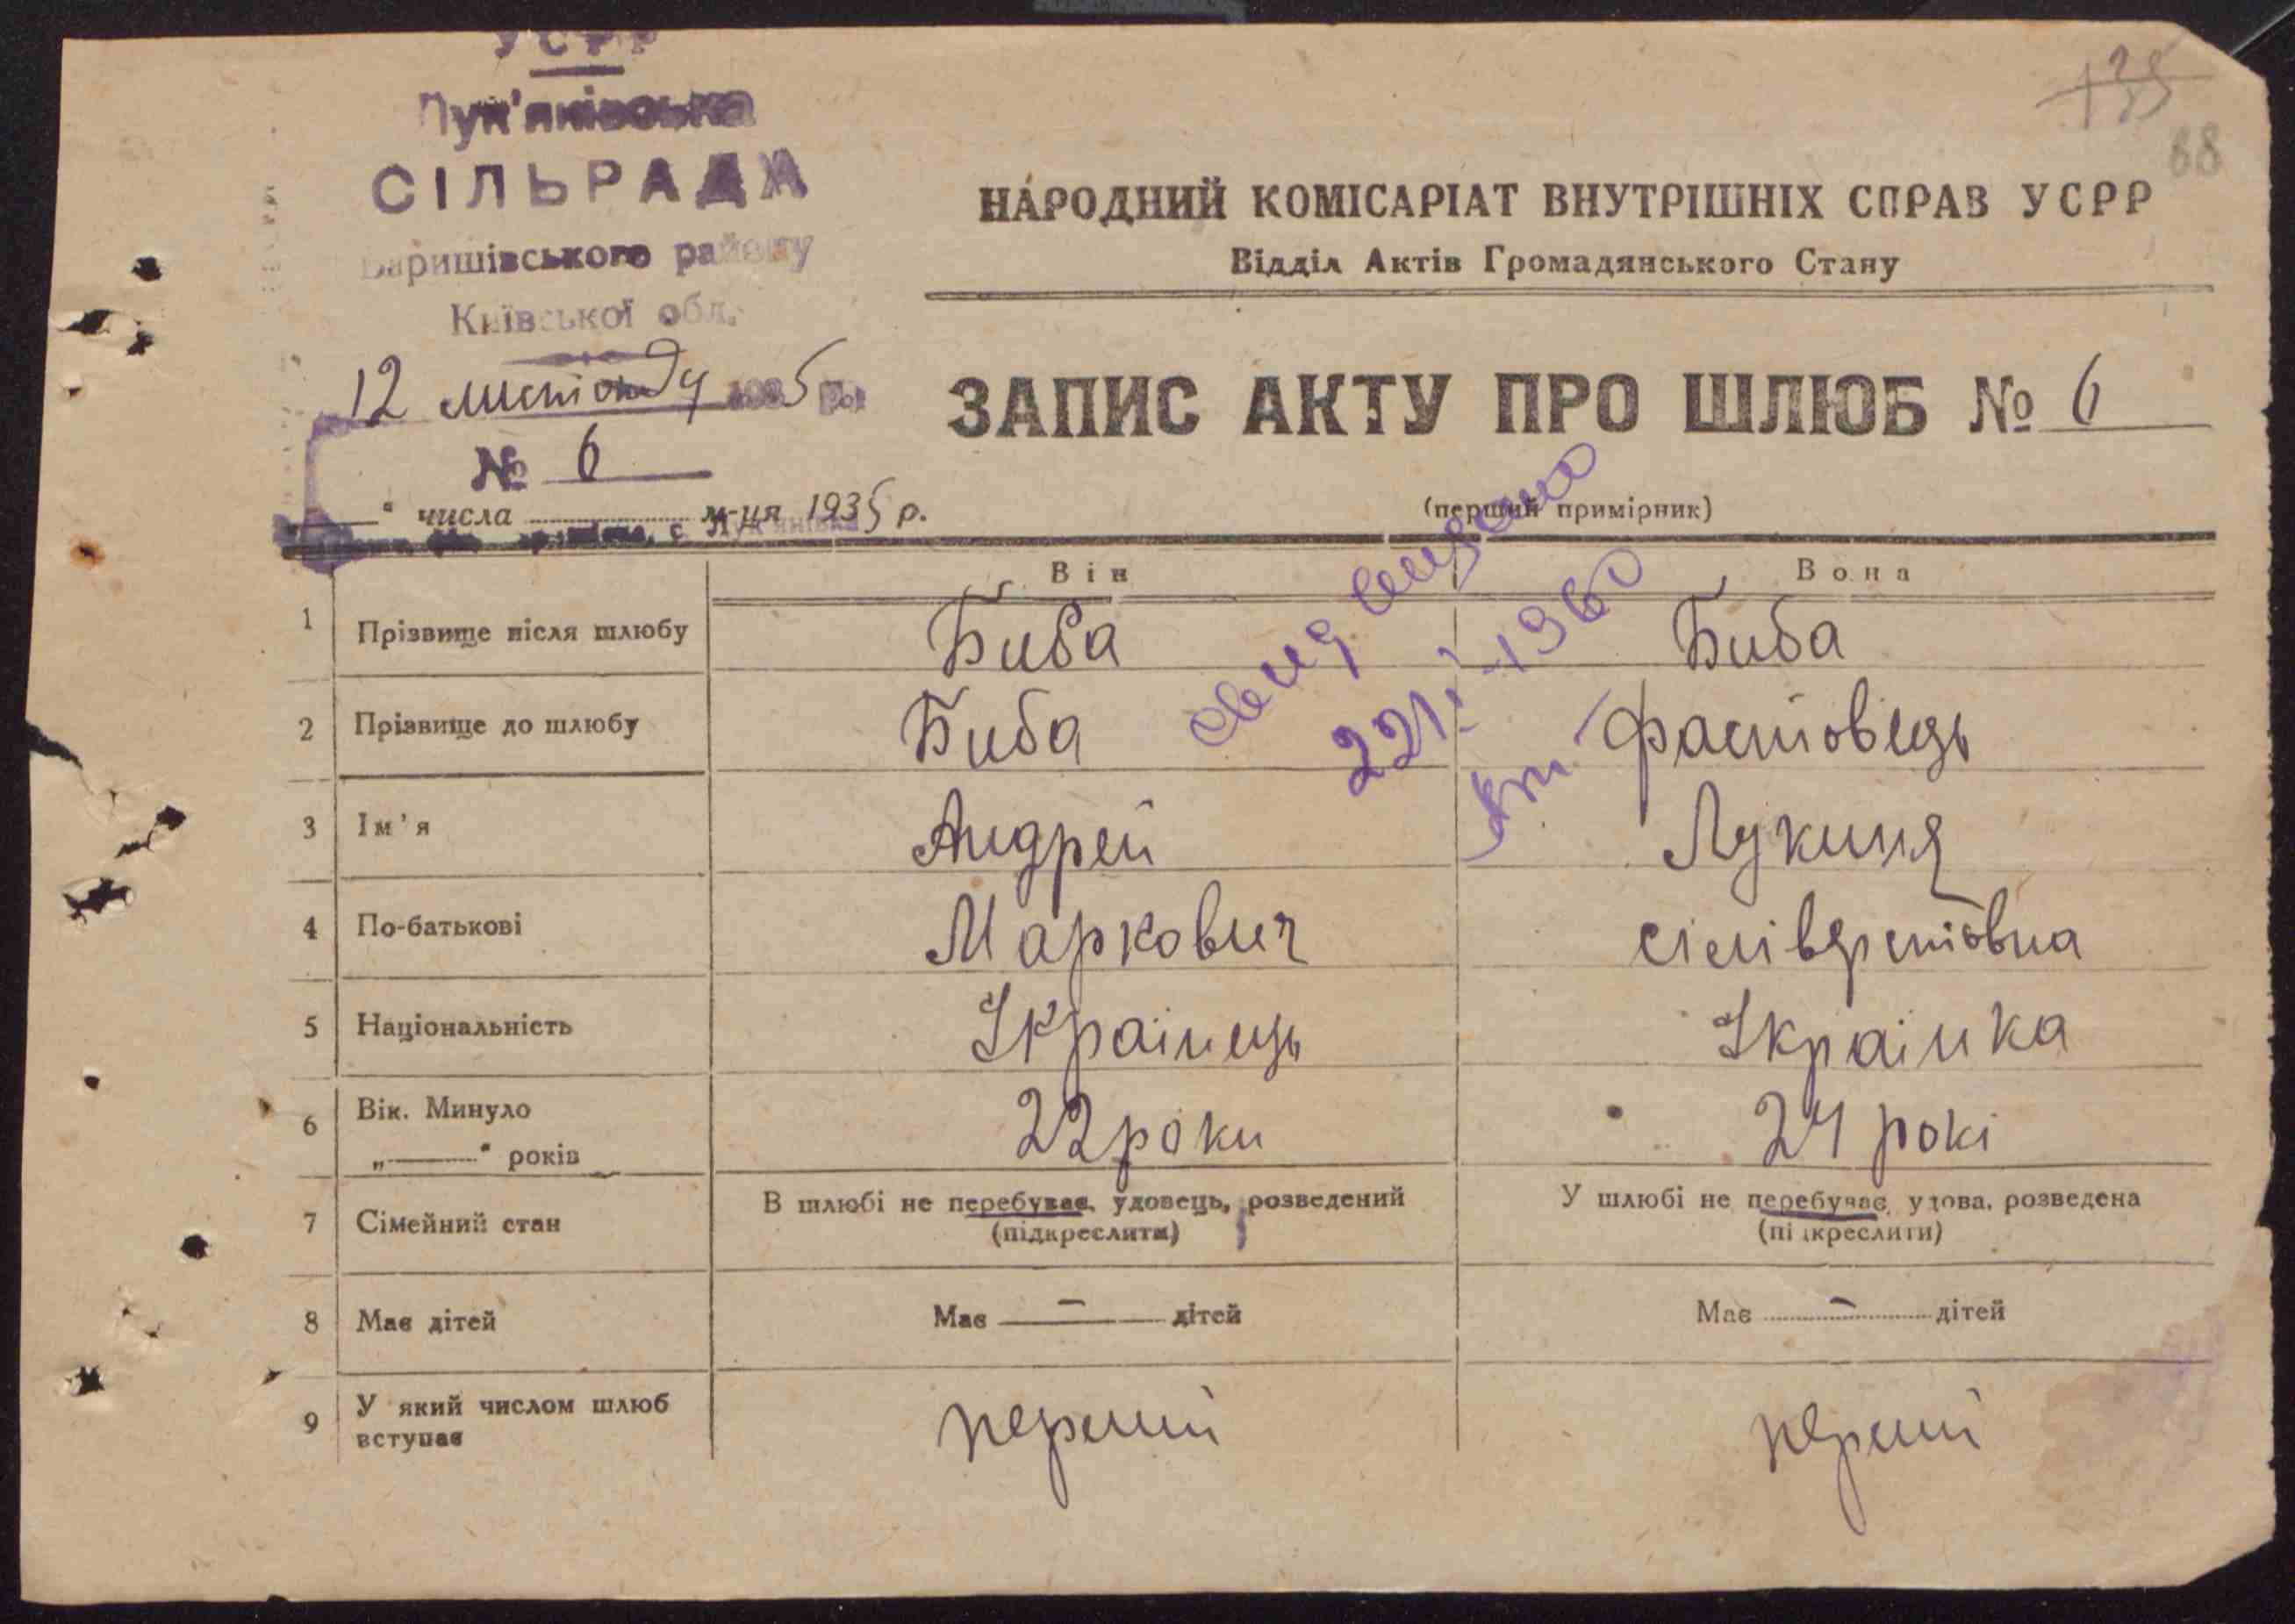 УСРР
Лук'янівська
СІЛЬРАДА
Баришівського району
Київської обл.
12 листопаду 1935 р.
№ 6
" числа м-ця 1935 р.
с. Лук'янівка
135
88
НАРОДНИЙ КОМІСАРІАТ ВНУТРІШНІХ СПРАВ УСРР
Відділ Актів Громадянського Стану
ЗАПИС АКТУ ПРО ШЛЮБ № 6
(перший примірник)
Він Вона
1 Прізвище після шлюбу Биба Биба
2 Прізвище до шлюбу Биба Фастовець
3 Ім'я Андрей Лукиня
4 По-батькові Маркович Сілівερстовна
5 Національність Українець Українка
6 Вік. Минуло 22 роки 24 рокі
„ " років
7 Сімейний стан В шлюбі не перебуває, удовець, розведений У шлюбі не перебуває, удова, розведена
(підкреслити) (підкреслити)
8 Має дітей Має — дітей Має — дітей
9 У який числом шлюб вступає перший перший
свид выдано
1960